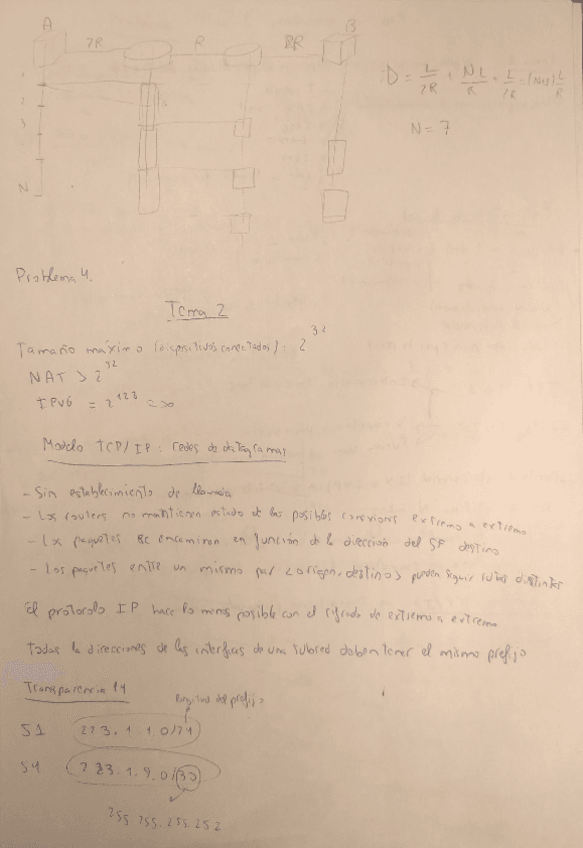 A B
2R R 2R
1
2
3
N
D = L/2R + NL/R + L/2R = (N+1) L/R
N = 7
Problema 4.
Tema 2
Tamaño máximo (dispositivos conectados): 2^32
NAT > 2^32
IPv6 = 2^128 = ∞
Modelo TCP/IP: redes de datagramas
- Sin establecimiento de llamada
- Los routers no mantienen estado de las posibles conexiones extremo a extremo
- Los paquetes se encaminan en función de la dirección del SF destino
- Los paquetes entre un mismo par <origen, destino> pueden seguir rutas distintas
El protocolo IP hace lo menos posible con el de extremo a extremo
Todas la direcciones de las interfaces de una subred deben tener el mismo prefijo
Transparencia 14
longitud del prefijo
S1 223.1.1.0/24
S4 223.1.9.0/30
255.255.255.252